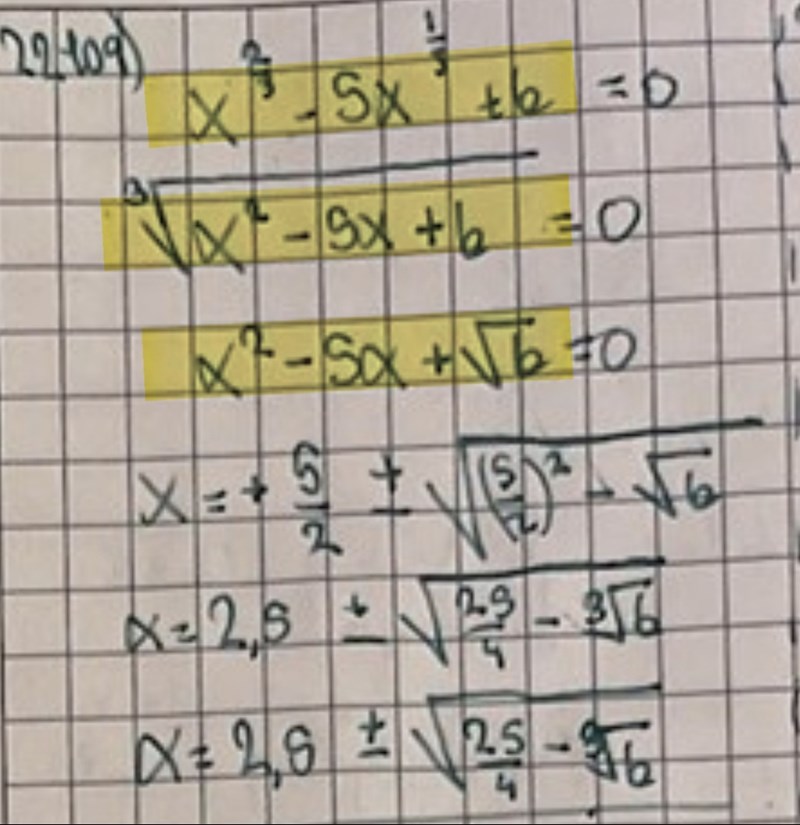 22109)
x^(2/3) - 5x^(1/3) + 6 = 0
∛(x² - 5x + 6) = 0
x² - 5x + √6 = 0
x = + 5/2 ± √((5/2)² - √6)
x = 2,5 ± √(25/4 - ∛6)
x = 2,5 ± √(25/4 - ∛6)